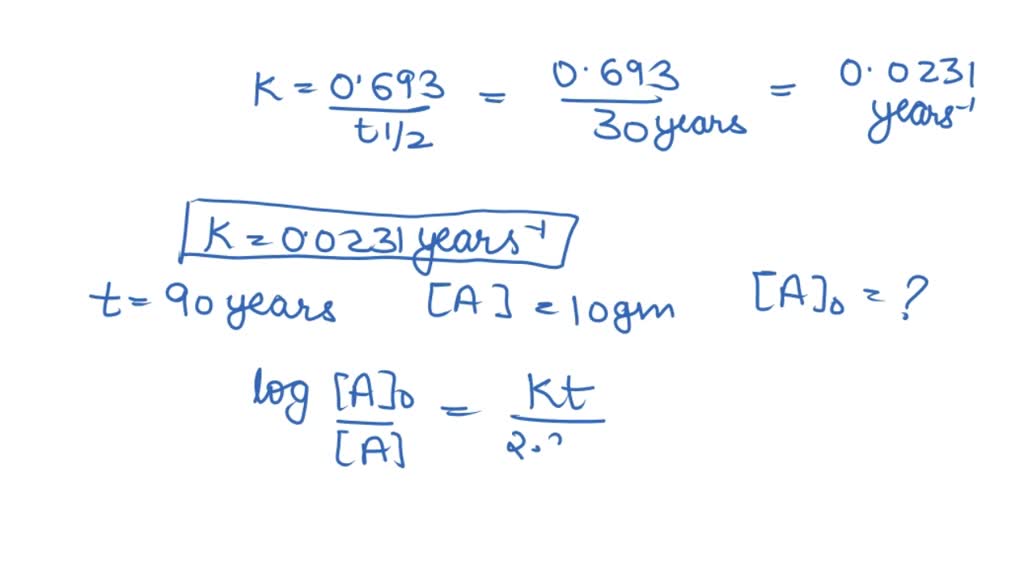 K = 0.693 / t1/2 = 0.693 / 30 years = 0.0231 years⁻¹
K = 0.0231 years⁻¹
t = 90 years [A] = 10gm [A]₀ = ?
log [A]₀ / [A] = Kt / 2.